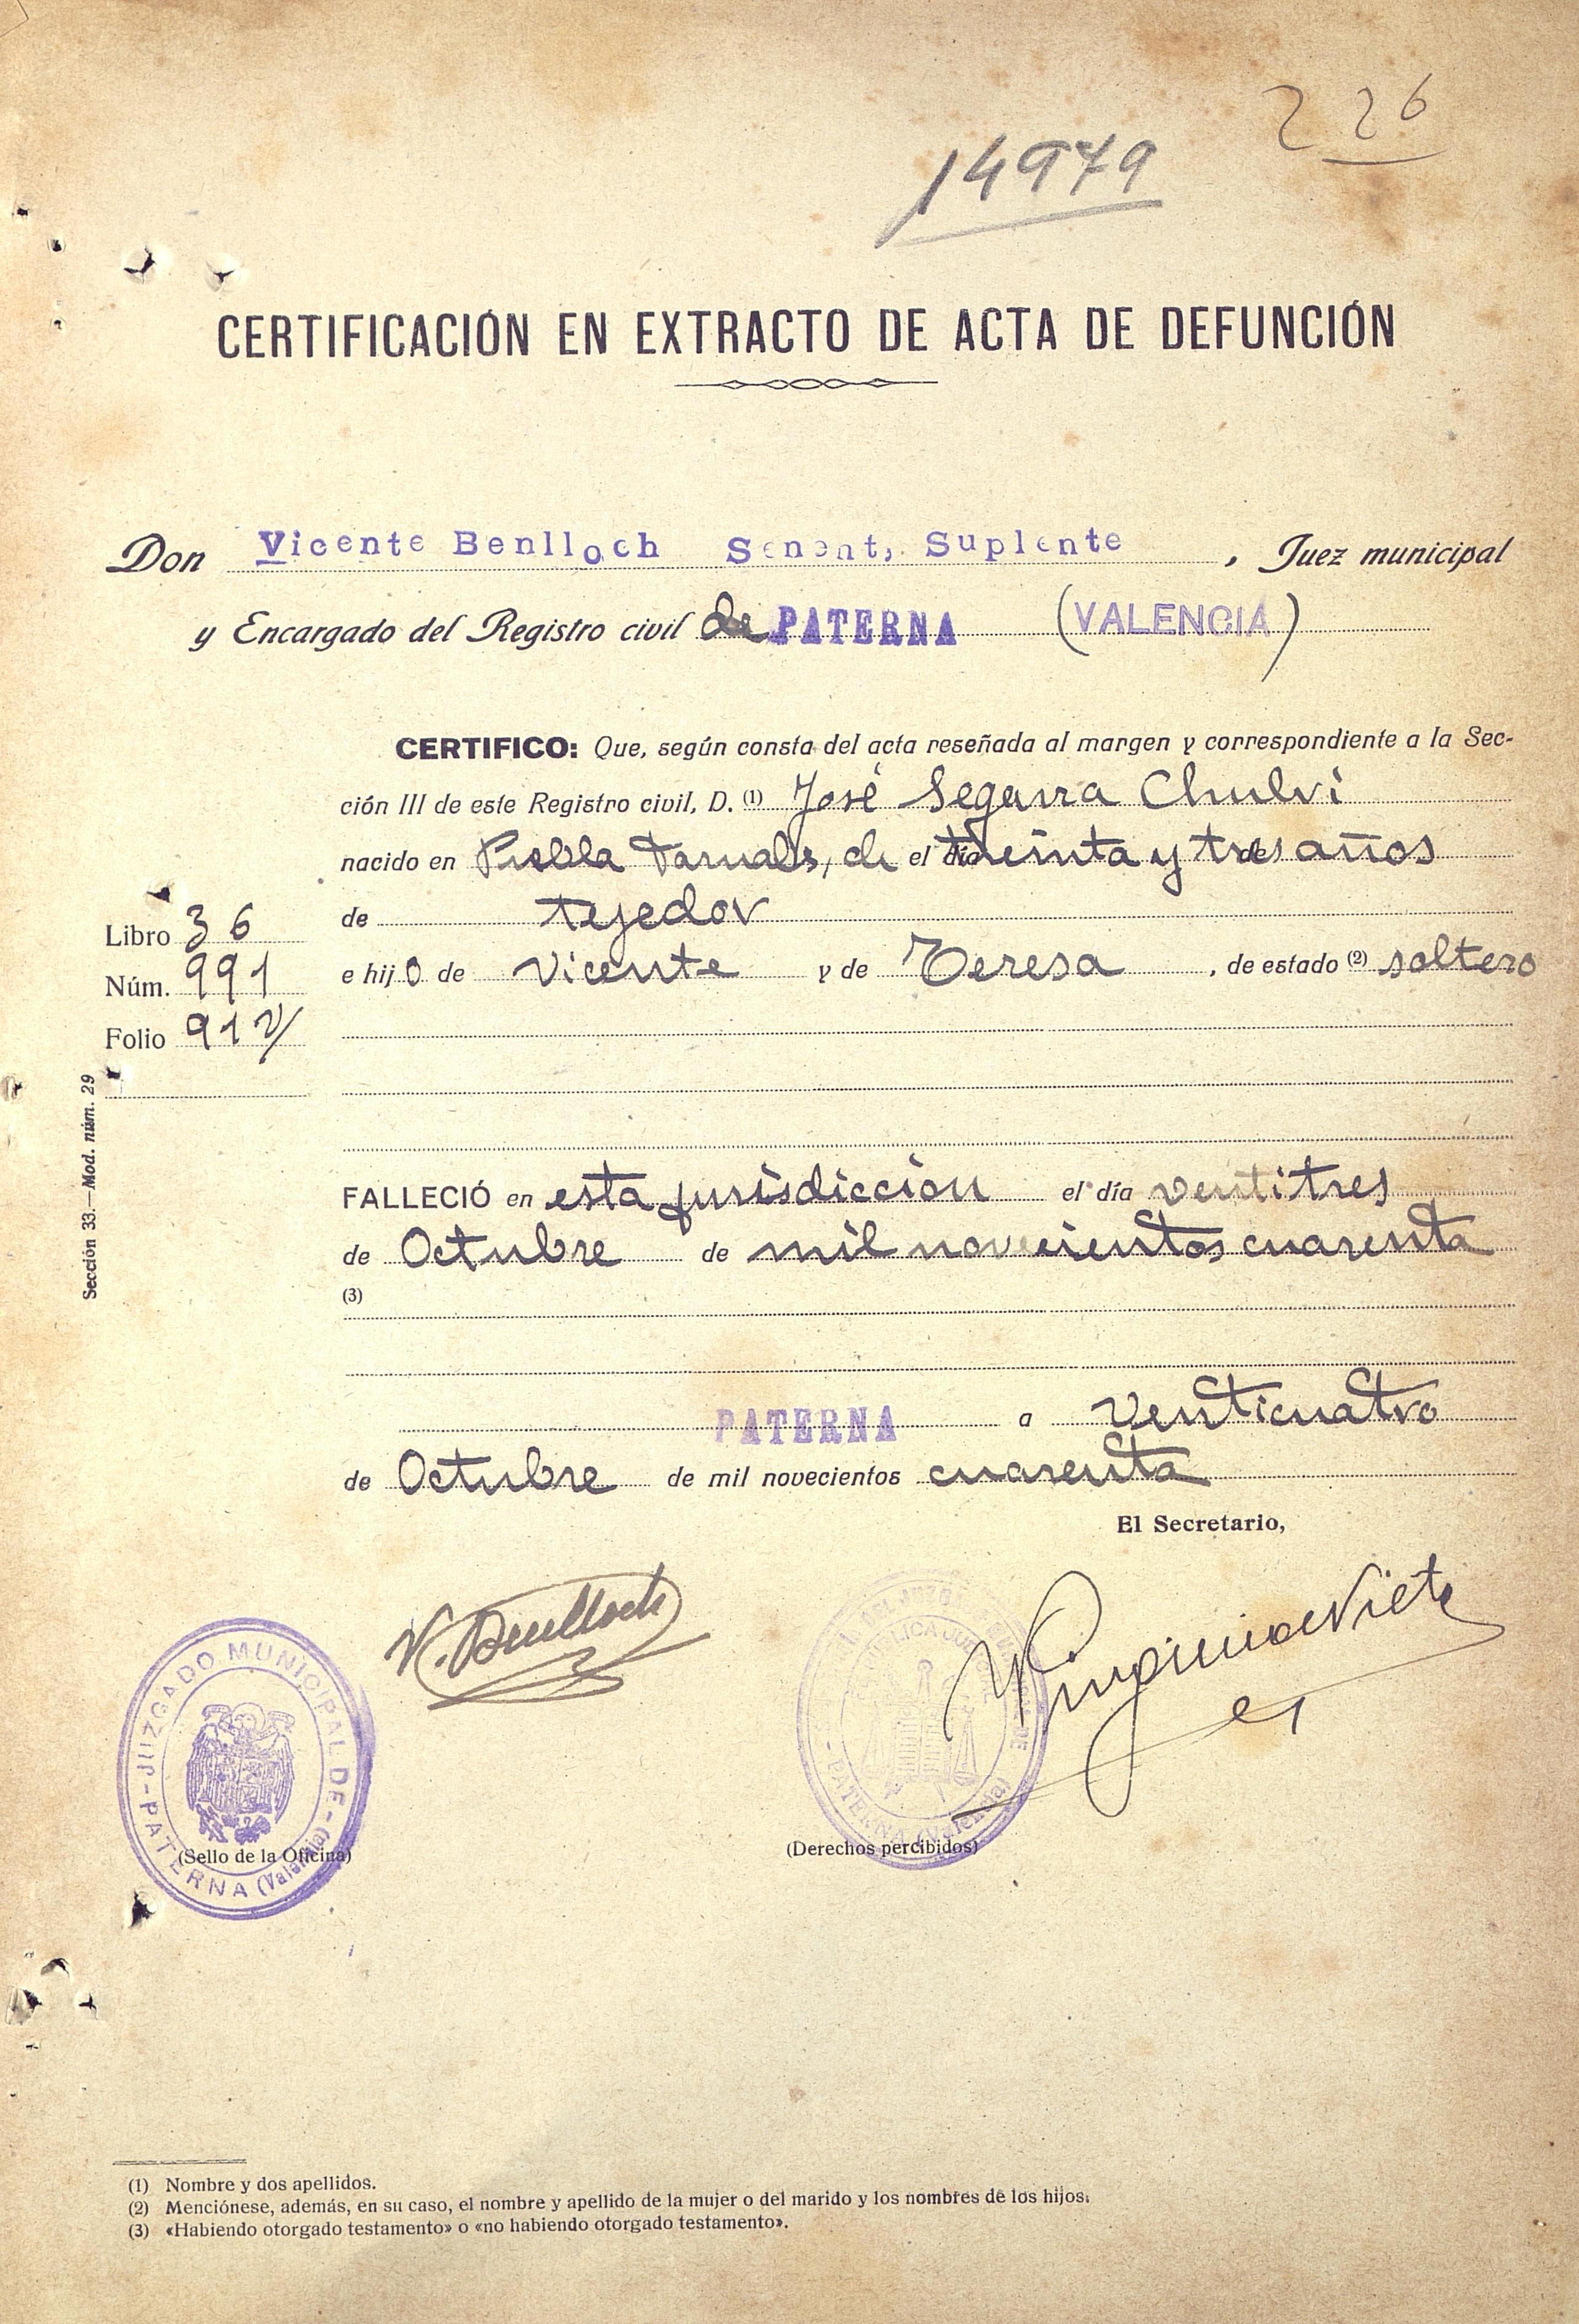 226
14979
CERTIFICACIÓN EN EXTRACTO DE ACTA DE DEFUNCIÓN
Don Vicente Benlloch Senent, Suplente, Juez municipal
y Encargado del Registro civil de PATERNA (VALENCIA)
CERTIFICO: Que, según consta del acta reseñada al margen y correspondiente a la Sec-
ción III de este Registro civil, D. (1) José Segarra Chulvi
nacido en Puebla Farnals, de el día treinta y tres de años
de tejedor
e hijo de Vicente y de Teresa, de estado (2) soltero
Libro 36
Núm. 991
Folio 91 v/
Sección 33.—Mod. núm. 29
FALLECIÓ en esta jurisdicción el día ventitres
de Octubre de mil novecientos cuarenta
(3)
PATERNA a Venticuatro
de Octubre de mil novecientos cuarenta
El Secretario,
V. Benlloch
JUZGADO MUNICIPAL DE
- PATERNA (Valencia) -
(Sello de la Oficina)
PATERNA (Valencia)
(Derechos percibidos)
(1) Nombre y dos apellidos.
(2) Menciónese, además, en su caso, el nombre y apellido de la mujer o del marido y los nombres de los hijos.
(3) «Habiendo otorgado testamento» o «no habiendo otorgado testamento».